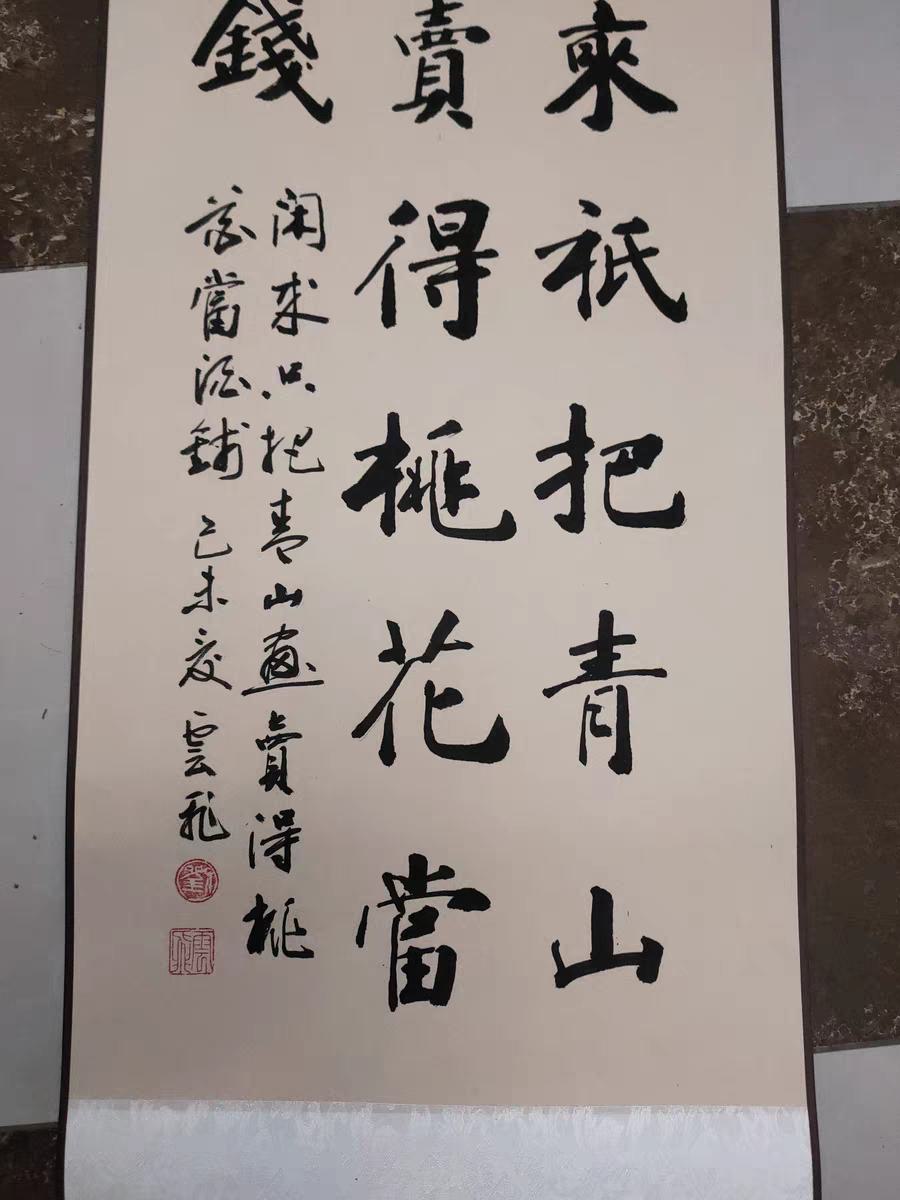 來祇把青山
賣得桃花當
錢
闲来只把青山畫賣得桃
花當酒錢 己未夏 雲飛